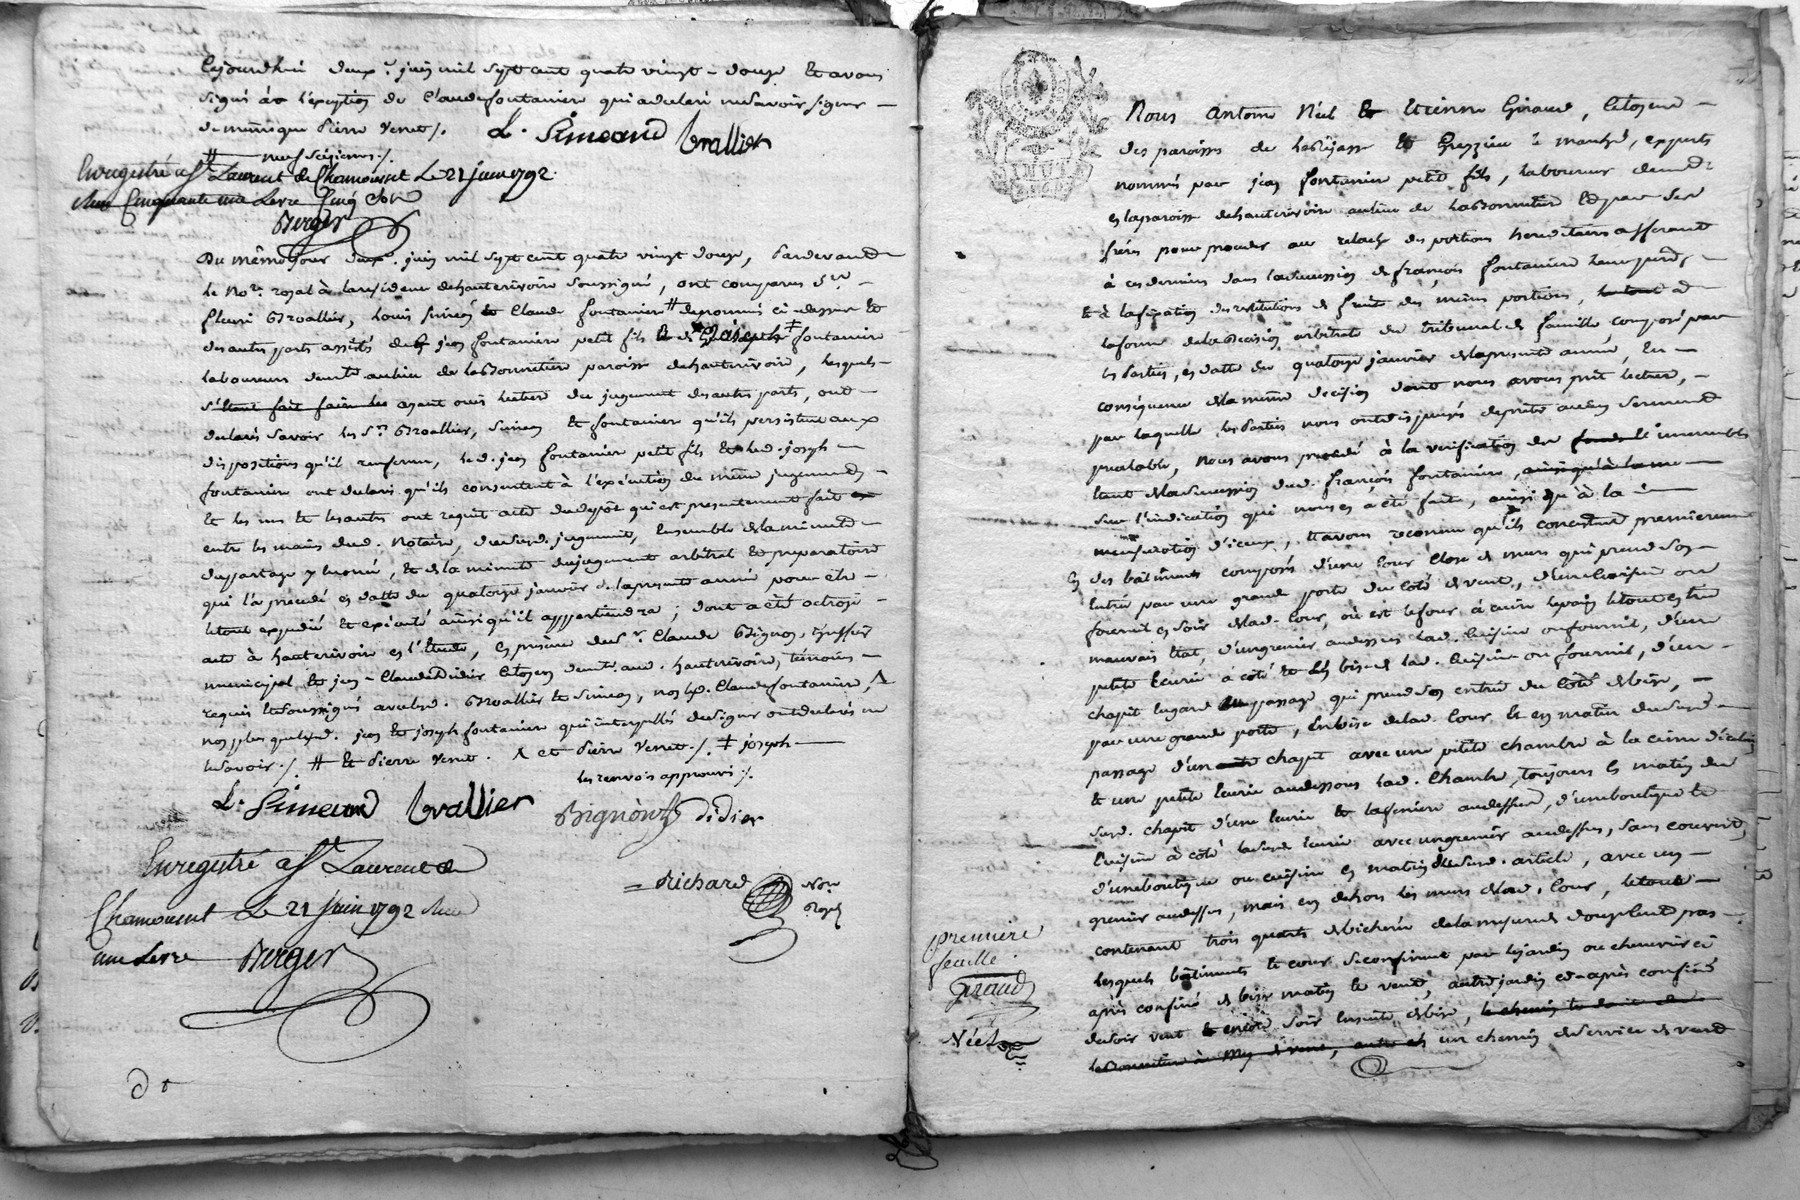 Cejourdhui deux.e juin mil sept cent quatre vingt-douze Et avons
signé à l'exception de Claude fontaniere qui a declaré ne savoir signer
de même que Pierre Venet ./. L. Simeand Grallier
neuf ./.
Enregistré a St Laurent de Chamousset Le 21 juin 1792
Cinquante une Livre Cinq
Berger
Du même jour deux.e juin mil sept cent quatre vingt douze, Pardevant
le No.re royal à la residence dehauterivoire soussigné, ont comparus s.rs
fleuri Grallier, Louis simeand et Claude fontaniere # denommés ci dessus et
des autres parts assistés de jean fontaniere petit fils fontaniere
laboureurs demt. au lieu de la Bonnetière paroisse dehauterivoire, lesquels
ayant ouï lecture du jugement des autres parts, ont
declarés savoir les s.rs Grallier, simean et fontaniere qu'ils persistent aux
dispositions qu'il renferme, led. jean fontaniere petit fils et led. joseph
fontaniere ont declaré qu'ils consentent à l'exécution du même jugement,
Et les uns et les autres ont requit acte du depôt qui est presentement fait
entre les mains dud. Notaire, dud. jugement, Ensemble de la minute
du partage y enoncé, et de la minute du jugement arbitral et preparatoire
qui l'a precedé en datte du quatorze janvier de la presente année pour être
letout expedié et executé ainsi qu'il appartiendra; dont a été octroié
acte à hauterivoire en l'Etude, en présence de s.r Claude Bignon, greffier
municipal et jean-Claude Didier Citoyen demt. aud. hauterivoire, témoins
requis et soussignés avec lesd. Grallier et simean, non led. Claude fontaniere, Λ
non plus que lesd. jean et joseph fontaniere qui interpellés de signer ont declarés ne
le savoir ./. # et Pierre Venet. Λ et Pierre Venet ./. ‡ joseph
les renvois approuvés ./.
L. Simeand Grallier Bignon Didier
Enregistré a St Laurent de
Chamousset Le 21 juin 1792
une Livre Berger
Richard No.re
Royal
Nous Antoine Néel et Etienne Giraud, Citoyens
des paroisses de et Grezzieu le marché, experts
nommés par jean fontaniere petit fils, laboureur demt.
en la paroisse dehauterivoire au lieu de la Bonnetière Et par ses
frères pour proceder au relache des portions hereditaires afferant
à ces derniers dans la succession de françois fontaniere leur pere,
et à la fixation des restitutions de fruits des mêmes portions, le tout a
la forme de la Decision arbitrale du tribunal de famille composé par
les Parties, en datte du quatorze janvier de la presente année, En
conséquence de la même decision dont nous avons prit lecture,
par laquelle les Parties nous ont dispensés de prêter aucun serment
prealable, Nous avons procedé à la verification des immeubles
de la succession dud. françois fontaniere,
sur l'indication qui nous en a été faite, ainsi qu'à la
mensuration d'iceux, Et avons reconnu qu'ils consistent premierement
En des bâtiments composés d'une Cour Close de murs qui prend son
Entrée par une grande porte du Coté de vent, d'une Cuisine ou
fournil en soir de lad. Cour, où est le four à cuire le pain letout en très
mauvais Etat, d'un grenier audessus lad. Cuisine ou fournil, d'une
petite Ecurie à coté et de bise de lad. Cuisine ou fournil, d'un
chapit passage qui prend son entrée du Coté de bise,
par une grande porte, En bise de lad. Cour et en matin dud.
passage d'un chapit avec une petite chambre à la cime
et une petite Ecurie audessous lad. Chambre, toujours en matin du
susd. chapit d'une Ecurie et la feniere audessus, d'une boutique et
Cuisine à côté la susd. Ecurie avec un grenier audessus, sans couvert,
d'une boutique ou cuisine en matin du susd. article, avec un
grenier audessus, mais en dehors les murs de lad. Cour, letout
contenant trois quarts de bicherée de la mesure
lesquels bâtiments et cour se confinent par le jardin ou cheneviere ci
après confiné de bise matin et vent, autre jardin ci-après confiné
de soir vent et encore soir Ensuite de bise,
un chemin de service de vent
Premiere
feuille.
Giraud
Néel